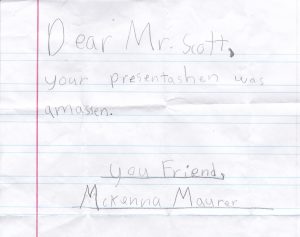 Dear Mr. Scott,
your presentashen was
amassen.
you Friend,
Mckenna Maurer